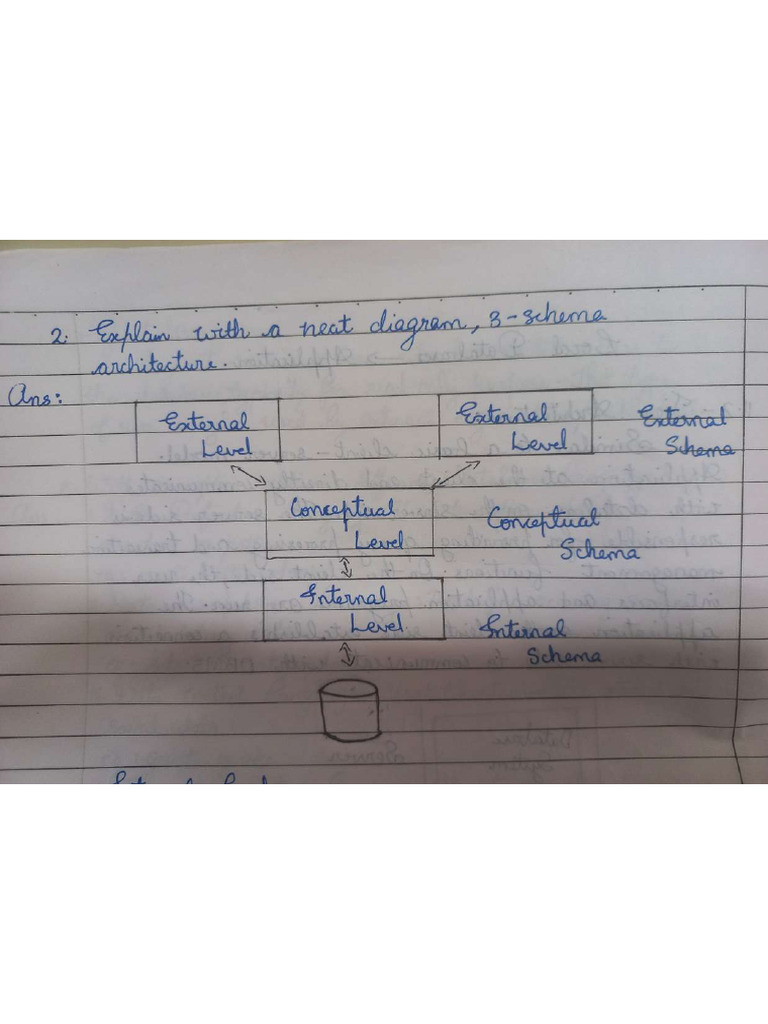 2. Explain with a neat diagram, 3-schema
architecture.
Ans:
External Level
External Level
External Schema
Conceptual Level
Conceptual Schema
Internal Level
Internal Schema